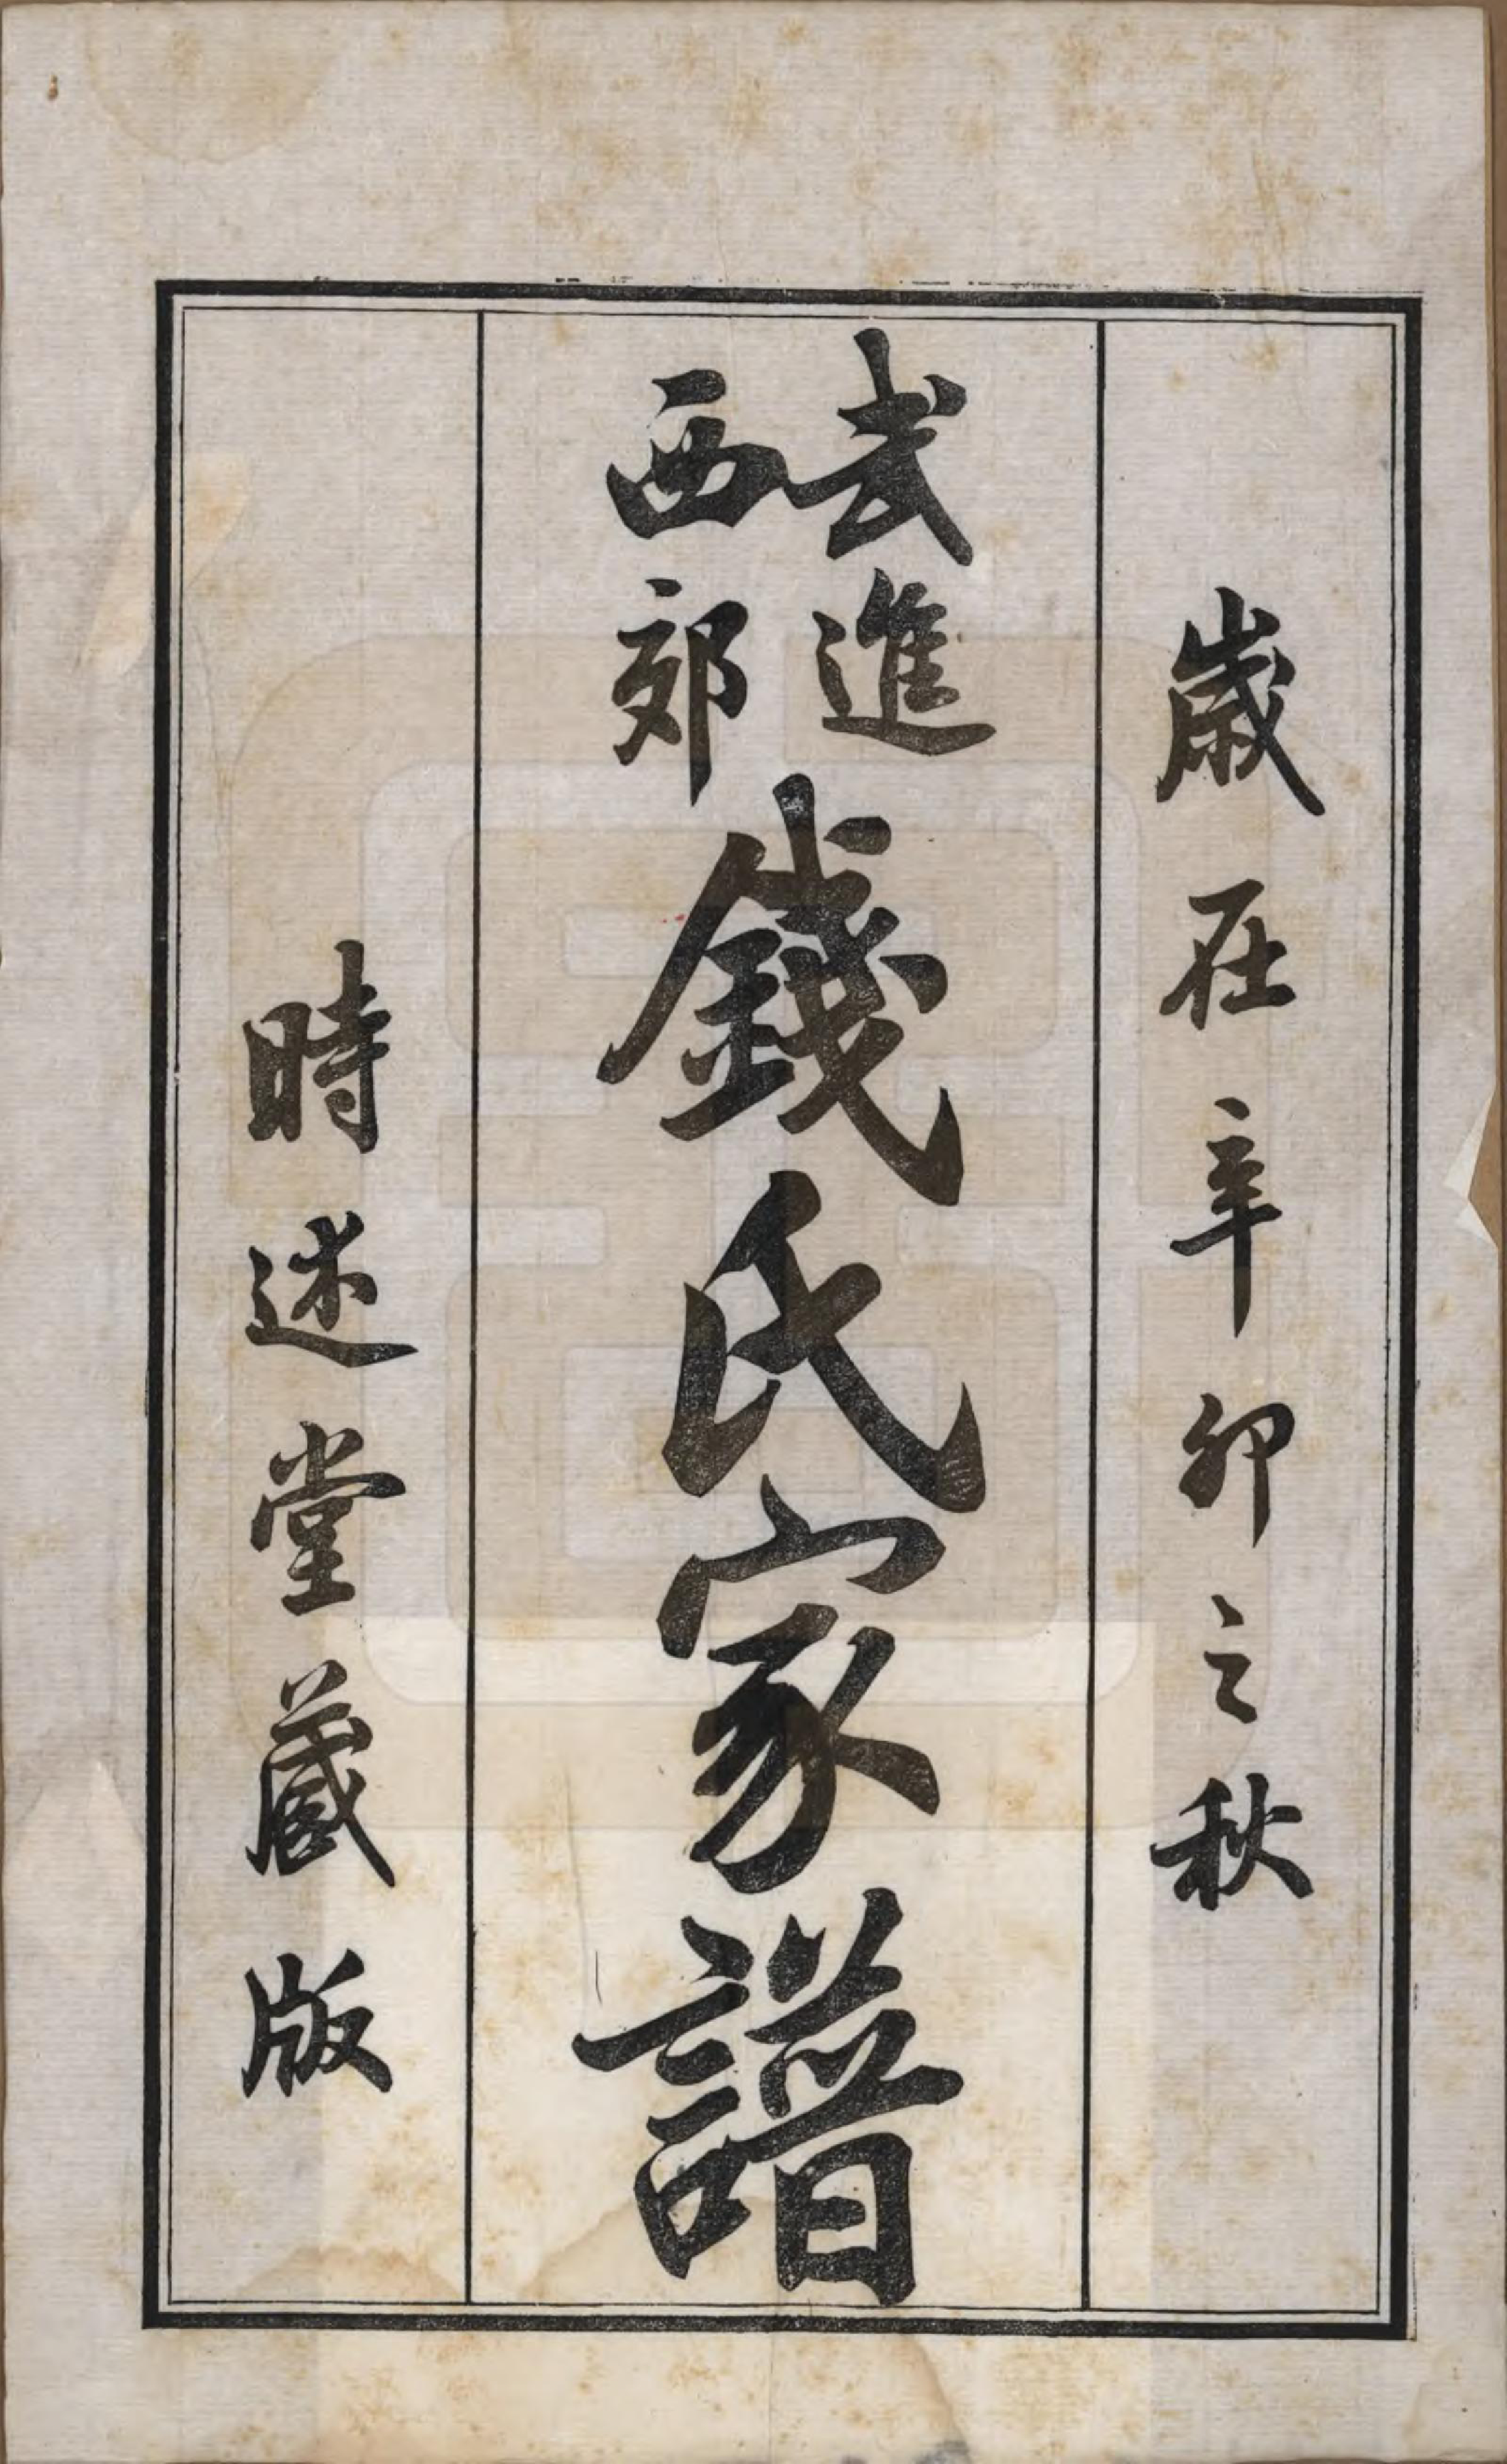 歲在辛卯之秋
武進
西郊
錢氏家譜
時述堂藏版